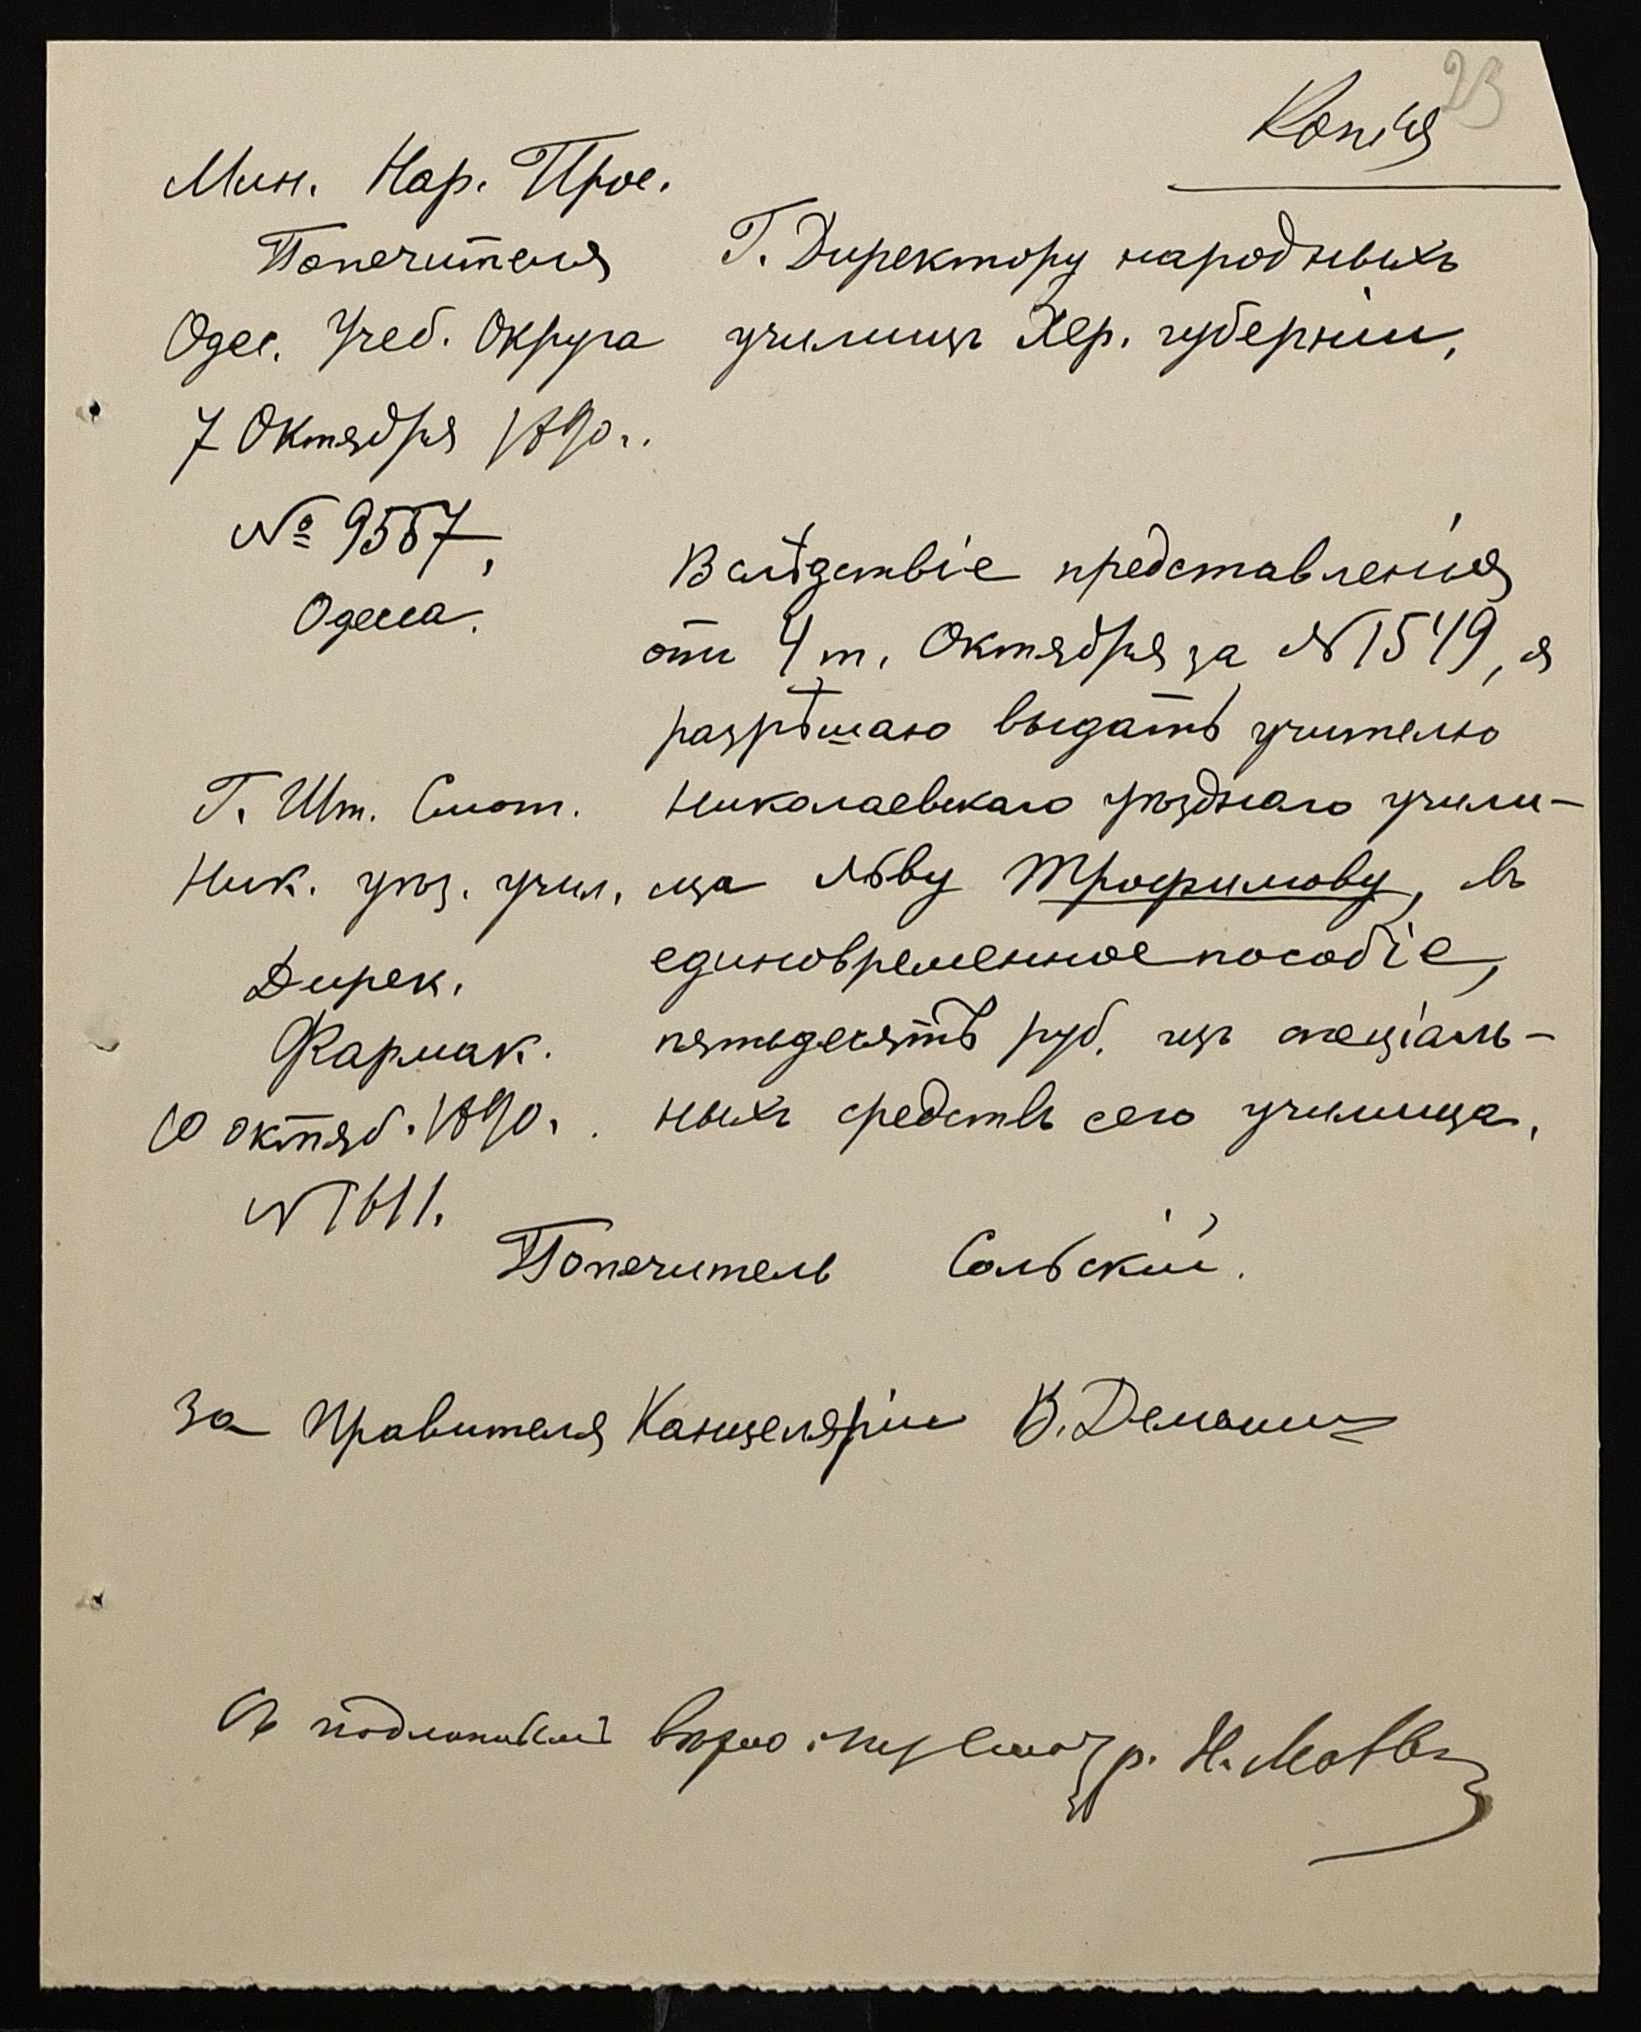 23
Копія
Мин. Нар. Прос.
Попечителя
Одес. Учеб. Округа
7 Октября 1890 г.
№ 9557,
Одесса.
Г. Директору народныхъ
училищъ Хер. губерніи,
Вслѣдствіе представленія
отъ 4 т. Октября за № 1549, я
разрѣшаю выдать учителю
Николаевскаго уѣзднаго учили-
ща Льву Трофимову, въ
единовременное пособіе,
пятьдесятъ руб. изъ спеціаль-
ныхъ средствъ сего училища.
Г. Шт. Смот.
Ник. уѣз. учил.
Дирек.
Фармак.
10 октяб. 1890 г.
№ 1611.
Попечитель Сольскій.
За Правителя Канцеляріи В.
Съ подлиннымъ вѣрно: